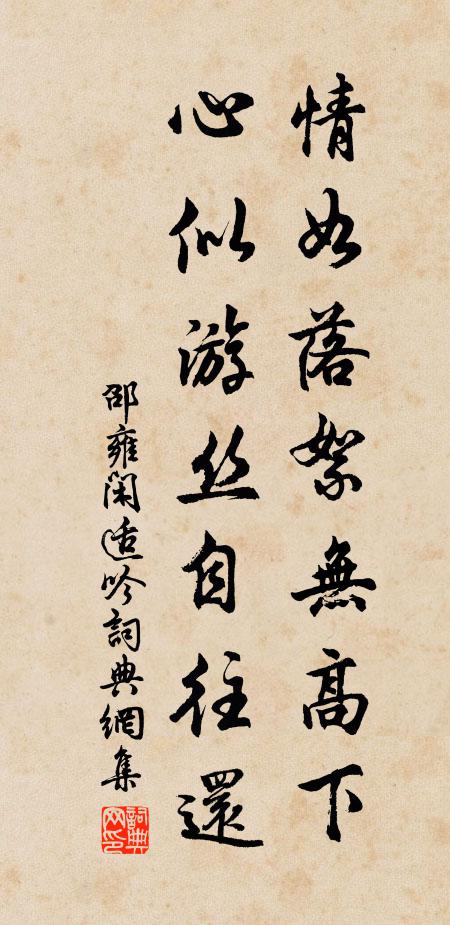 情如落絮無高下
心似游丝自往還
邵雍閑適吟詞典網集
詞典網印